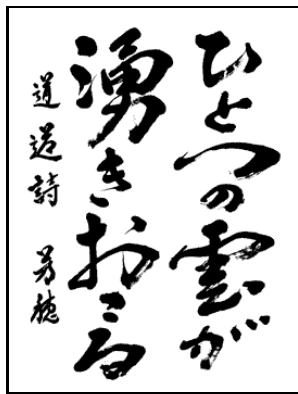 ひとつの雲が
湧きおこる
道造詩 芳穂